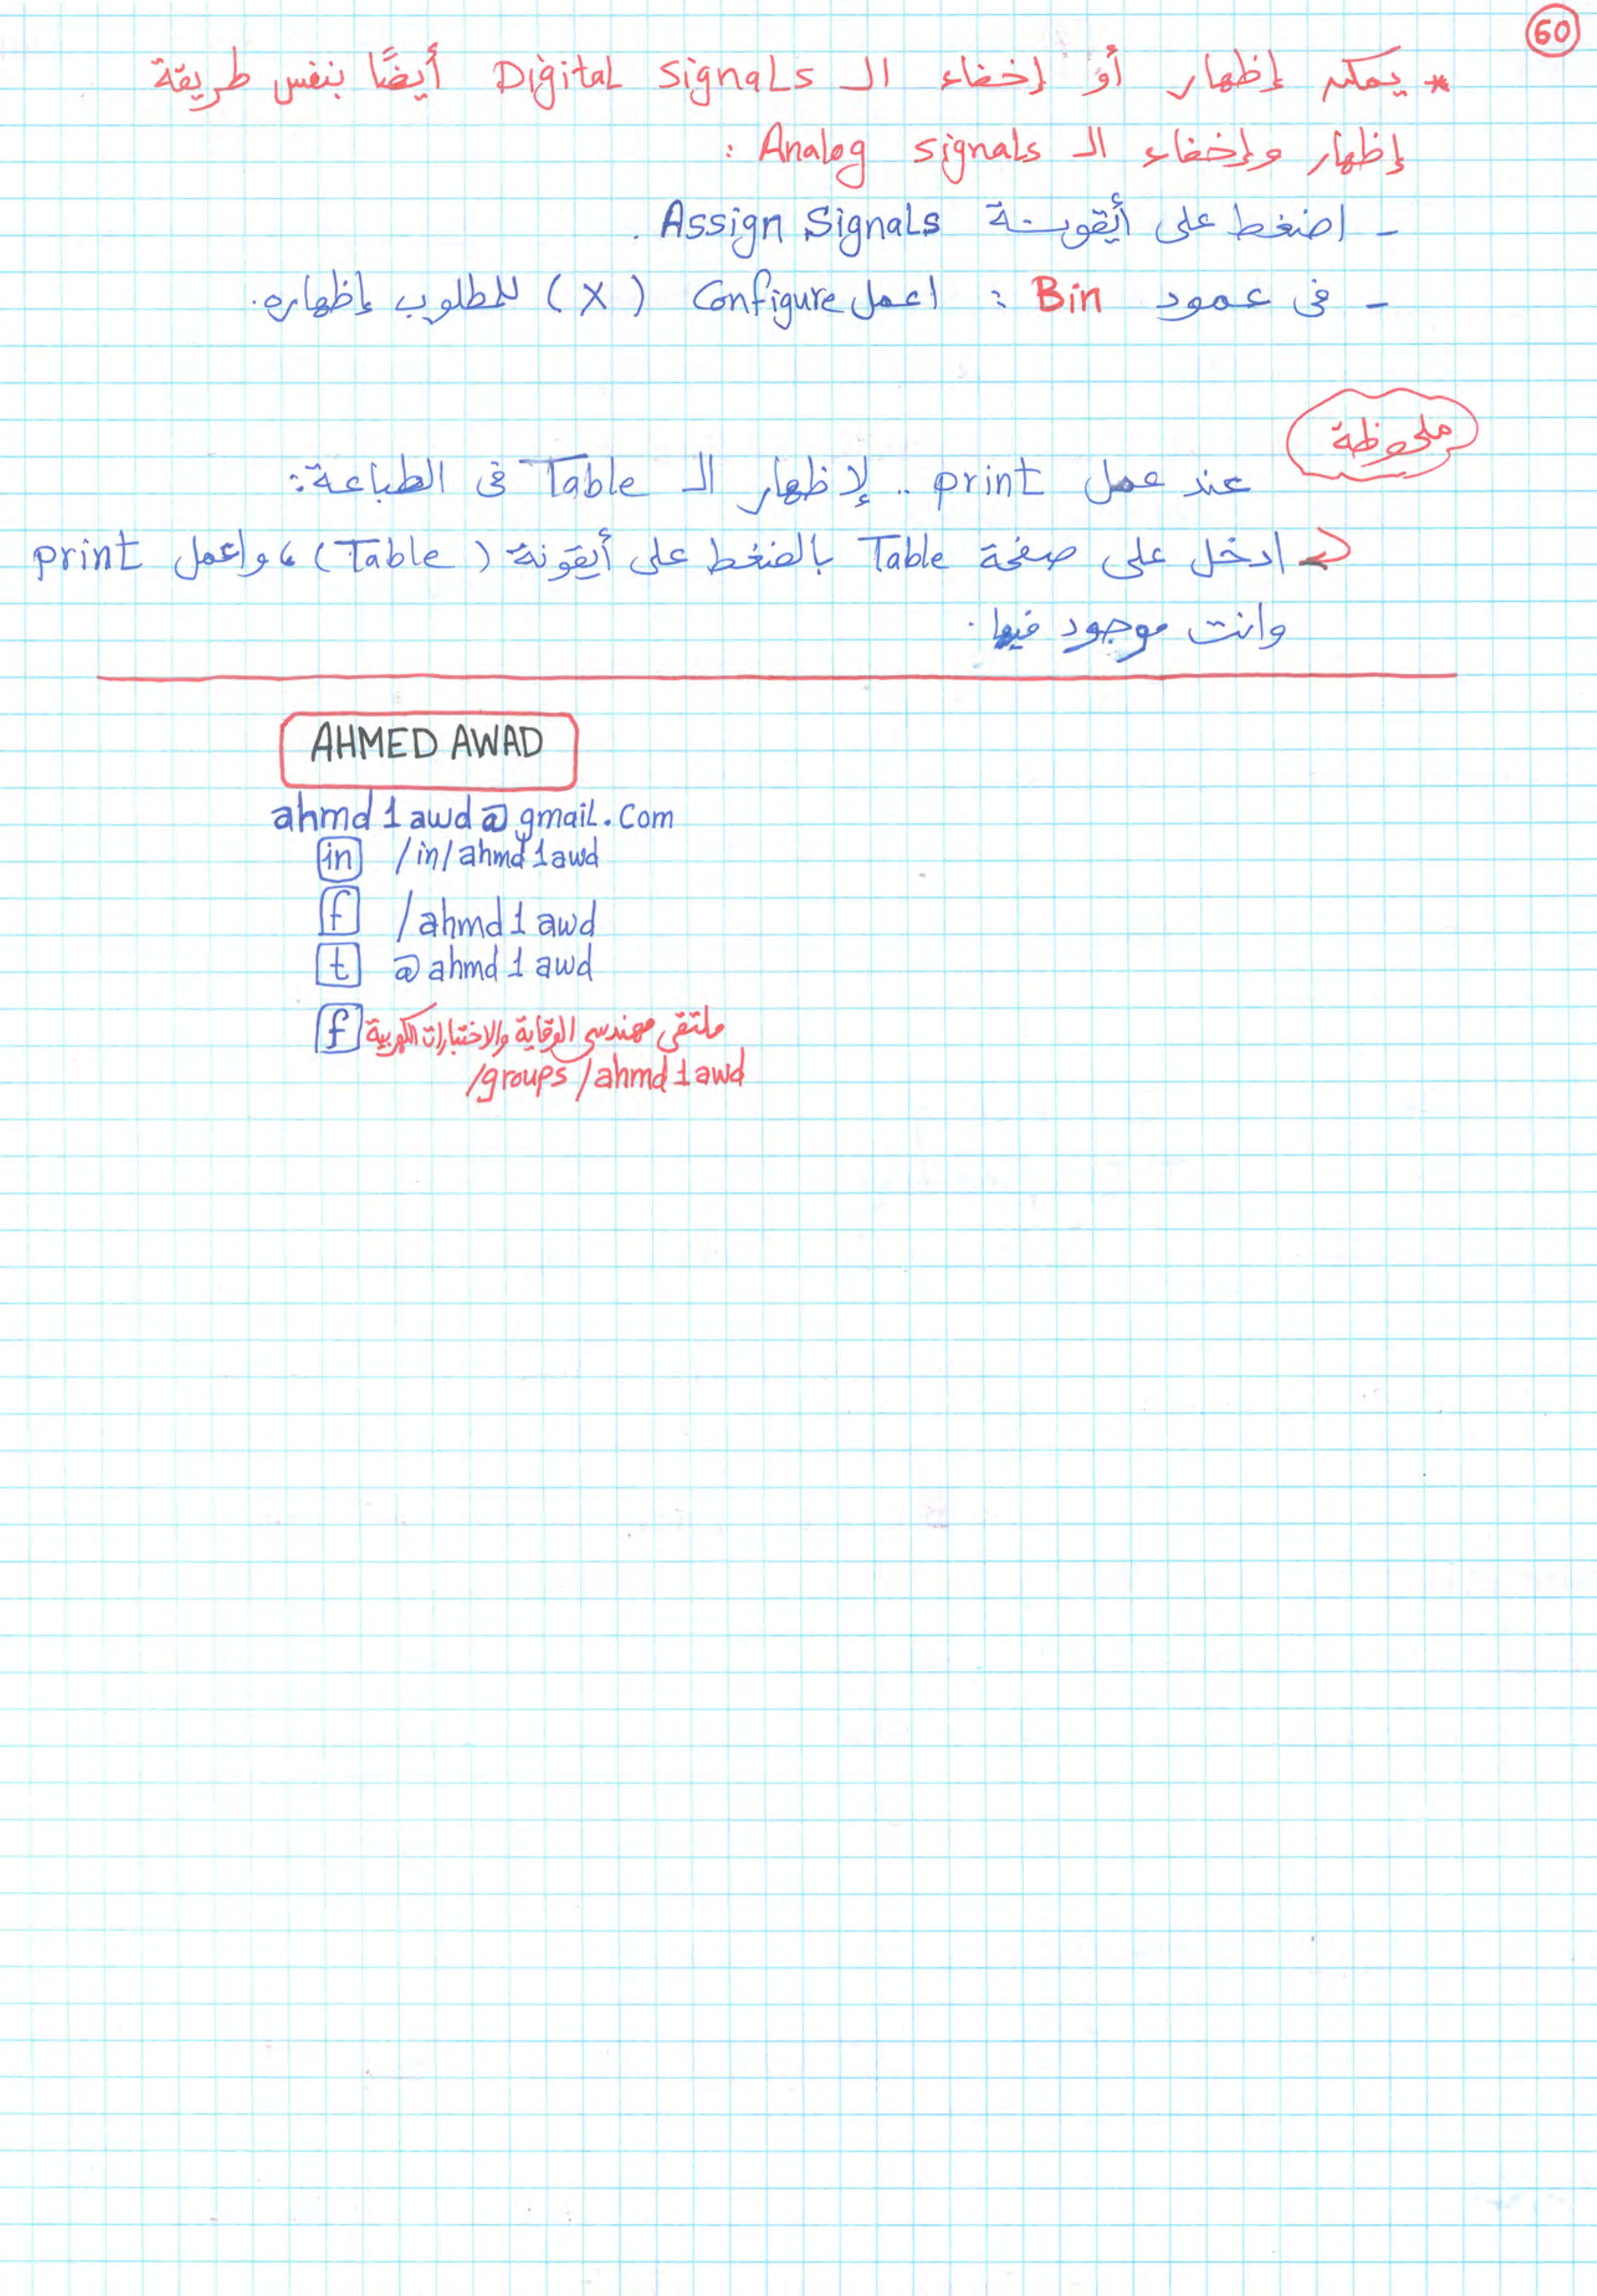 60
* يمكن إظهار أو إخفاء الـ Digital signals أيضًا بنفس طريقة
إظهار وإخفاء الـ Analog signals :
- اضغط على أيقونة Assign Signals .
- فى عمود Bin : اعمل Configure (X) للمطلوب إظهاره.
ملحوظة
عند عمل print .. لإظهار الـ Table فى الطباعة:
ادخل على صفحة Table بالضغط على أيقونة (Table) ، واعمل print
وانت موجود فيها.
AHMED AWAD
ahmd1awd@gmail.com
in /in/ahmd1awd
f /ahmd1awd
t @ahmd1awd
f ملتقى مهندسى الوقاية والاختبارات الكهربية
/groups/ahmd1awd